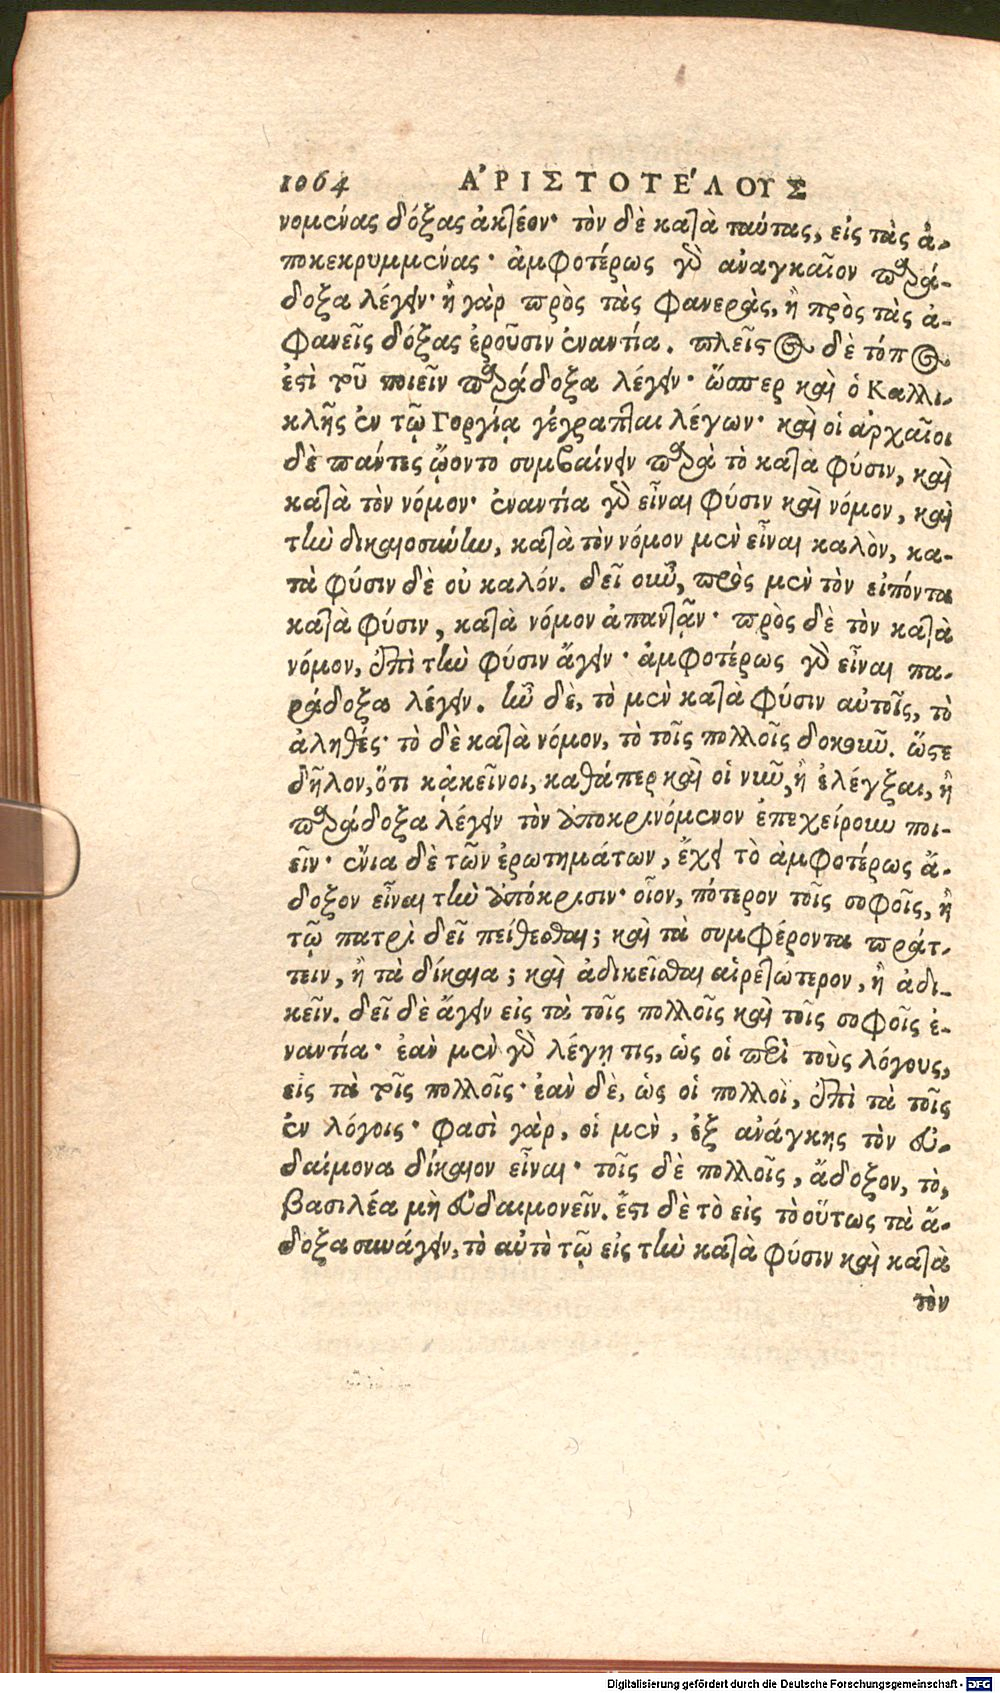 1064 ΑʼΡΙΣΤΟΤΕʹΛΟΥΣ
νομένας δόξας ἀκτέον· τὸν δὲ κατὰ ταύτας, εἰς τὰς ἀ-
ποκεκρυμμένας· ἀμφοτέρως γὸ ἀναγκαῖον παρά-
δοξα λέγειν· ἢ γὰρ πρὸς τὰς φανερὰς, ἢ πρὸς τὰς ἀ-
φανεῖς δόξας ἐροῦσιν ἐναντία. πλεῖστος δὲ τόπος
ἐστὶ τοῦ ποιεῖν παράδοξα λέγειν· ὥσπερ καὶ ὁ Καλλι-
κλῆς ἐν τῷ Γοργίᾳ γέγραπται λέγων· καὶ οἱ ἀρχαῖοι
δὲ πάντες ᾤοντο συμβαίνειν παρὰ τὸ κατὰ φύσιν, καὶ
κατὰ τὸν νόμον· ἐναντία γὸ εἶναι φύσιν καὶ νόμον, καὶ
τὴν δικαιοσύνην, κατὰ τὸν νόμον μὲν εἶναι καλὸν, κα-
τὰ φύσιν δὲ οὐ καλόν. δεῖ οὖν, πρὸς μὲν τὸν εἰπόντα
κατὰ φύσιν, κατὰ νόμον ἀπαντᾷν· πρὸς δὲ τὸν κατὰ
νόμον, ἐπὶ τὴν φύσιν ἄγειν· ἀμφοτέρως γὸ εἶναι πα-
ράδοξα λέγειν. ἦν δὲ, τὸ μὲν κατὰ φύσιν αὐτοῖς, τὸ
ἀληθές· τὸ δὲ κατὰ νόμον, τὸ τοῖς πολλοῖς δοκοῦν. ὥστε
δῆλον, ὅτι κἀκεῖνοι, καθάπερ καὶ οἱ νῦν, ἢ ἐλέγξαι, ἢ
παράδοξα λέγειν τὸν ὑποκρινόμενον ἐπεχείρουν ποι-
εῖν· ἔνια δὲ τῶν ἐρωτημάτων, ἔχει τὸ ἀμφοτέρως ἄ-
δοξον εἶναι τὴν ὑπόκρισιν· οἷον, πότερον τοῖς σοφοῖς, ἢ
τῷ πατρὶ δεῖ πείθεσθαι; καὶ τὰ συμφέροντα πράτ-
τειν, ἢ τὰ δίκαια; καὶ ἀδικεῖσθαι αἱρετώτερον, ἢ ἀδι-
κεῖν. δεῖ δὲ ἄγειν εἰς τὰ τοῖς πολλοῖς καὶ τοῖς σοφοῖς ἐ-
ναντία· ἐὰν μὲν γὸ λέγῃ τις, ὡς οἱ περὶ τοὺς λόγους,
εἰς τὰ τοῖς πολλοῖς· ἐὰν δὲ, ὡς οἱ πολλοὶ, ἐπὶ τὰ τοῖς
ἐν λόγοις· φασὶ γὰρ, οἱ μὲν, ἐξ ἀνάγκης τὸν εὐ-
δαίμονα δίκαιον εἶναι· τοῖς δὲ πολλοῖς, ἄδοξον, τὸ,
βασιλέα μὴ εὐδαιμονεῖν. ἔστι δὲ τὸ εἰς τὸ οὕτως τὰ ἄ-
δοξα συνάγειν, τὸ αὐτὸ τῷ εἰς τὴν κατὰ φύσιν καὶ κατὰ
τὸν
Digitalisierung gefördert durch die Deutsche Forschungsgemeinschaft - DFG